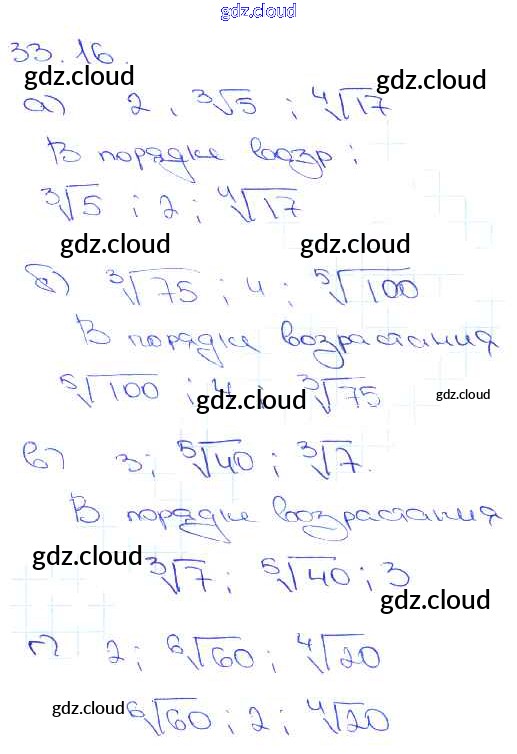 gdz.cloud
33.16.
gdz.cloud gdz.cloud
а) 2, ∛5; ∜17
В порядке возр:
∛5; 2; ∜17
gdz.cloud
gdz.cloud gdz.cloud
б) ∛75; 4; ⁵√100
В порядке возрастания
⁵√100; 4; ∛75
gdz.cloud gdz.cloud
в) 3; ⁵√40; ∛7.
В порядке возрастания
gdz.cloud
∛7; ⁵√40; 3
gdz.cloud
г) 2; ⁶√60; ∜20
⁶√60; 2; ∜20
gdz.cloud gdz.cloud